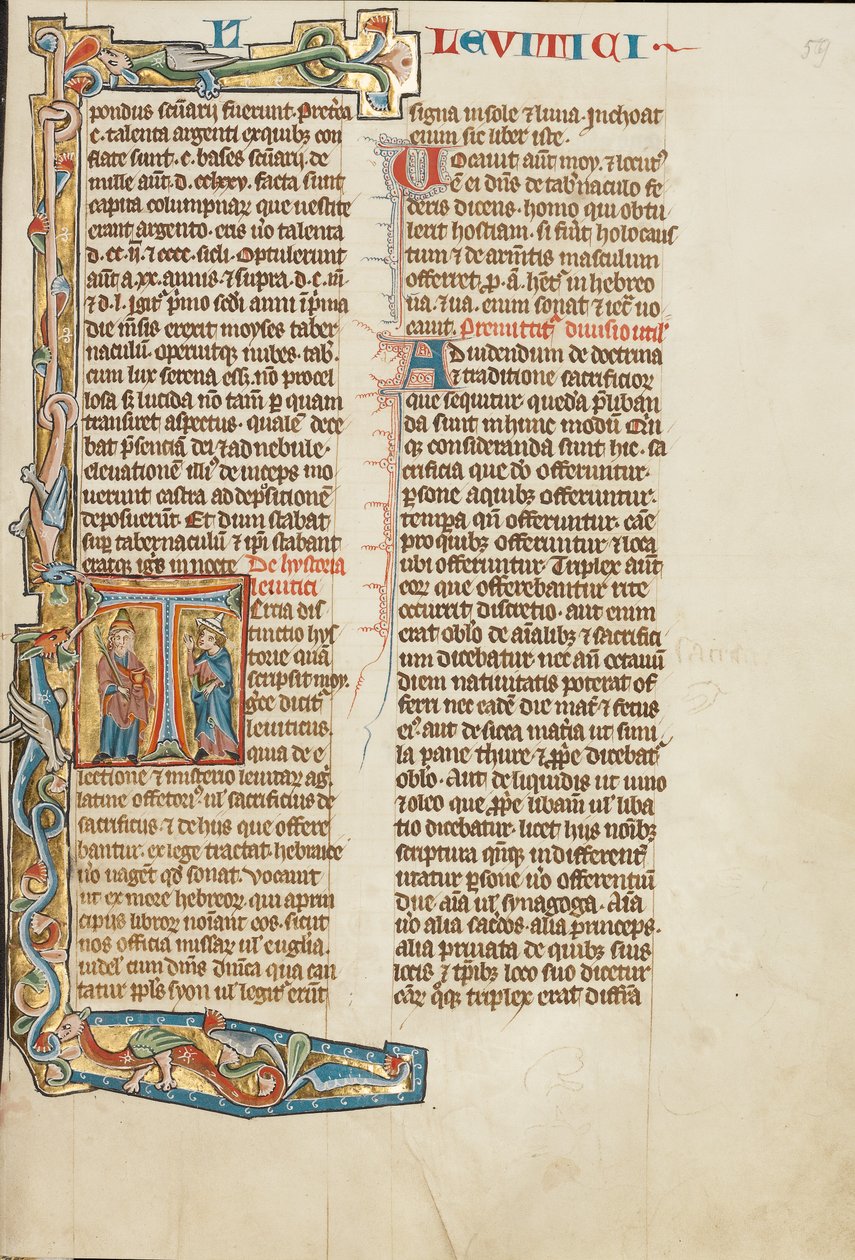 LEVITICI
59
pondus sc̄uarij fuerunt. Pret̄ea
c. talenta argenti ex quibꝫ con
flate sunt. c. bases sc̄uarij. de
mille aūt. d. cclxxv. facta sunt
capita columpnaꝝ que uestite
erant argento. eris u̾o talenta
d. cc. ij. ⁊ cccc. sicli. Optulerunt
aūt a. xx. annis. ⁊ supra. d. c. iij.
⁊ d. l. Igit̾ p̾mo sc̄di anni i p̾ma
die m̄sis erexit moyses taber
naculū. operuitqꝫ nubes. tab̾.
cum lux serena essꝫ. nō procel
losa sꝫ lucida nō tam̄ ꝑ quam
transiret aspectus. qualē dece
bat p̄senciā dei ⁊ ad nebule
eleuationē illi᾽ deinceps mo
uerunt castra ad dep̄sitionē
deposuerūt. Et dium stabat
suꝑ tabernaculū ⁊ ip̄i stabant
eratqꝫ ig̾s in nocte. De hystoria
leuitici
Tercia dis
tinctio hys
torie quā
scripsit moy.
g̾ce dicit̾
leuiticus.
quia de e
lectione ⁊ misterio leuitaꝝ ag̾.
latine offetori᾽. ul̾ sacrificius de
sacrificiis. ⁊ de hiis que offere
bantur. ex lege tractat. hebraice
u̾o uagēt qd̾ sonat. vocauit
ut ex more hebreoꝝ. qui a prin
cipiis libroꝝ noīant eos. sicut
nos officia missaꝝ ul̾ eug̅lia.
uidel̾ cum dīns dn̄ica qua can
tatur pp̄ls syon ul̾ legit̾ erūt
signa in sole ⁊ luna. Inchoat
enim sic liber iste.
Uocauit aūt moy. ⁊ locut᾽
ē ei dn̄s de tab̾naculo fe
deris dicens. homo qui obtu
lerit hostiam. si fūit holocaus
tum ⁊ de arm̄tis masculum
offerret. ꝓ. a. hēt̾ in hebreo
ua. ⁊ ua. enim sonat ⁊ iec̾ uo
cauit. Premittit̾ diuisio util᾽
Aduidendum de doctrina
⁊ traditione sacrificioꝝ
que sequitur. queda p̄liban
da sunt in hunc modū. Qn̄
qꝫ consideranda sunt hic. sa
crificia que d̾o offeruntur.
ꝑsone a quibꝫ offeruntur.
tempa qn̄ offeruntur. caūe
pro quibꝫ offeruntur ⁊ loca
ubi offeruntur. Triplex aūt
eoꝝ que offerebantur rite
occurrit discretio. aut enim
erat obl̄o de aīalibꝫ ⁊ sacrifici
um dicebatur. nec an̄ octauū
diem natiuitatis poterat of
ferri nec eadē die mat̾ ⁊ fetus
ei᾽. aut de sicca mat̾ia ut simi
la pane thure ⁊ ꝓp̾e dicebat̾
obl̄o. Aut de liquidis ut uino
⁊ oleo que ꝓp̾e libam̄ ul̾ liba
tio dicebatur. licet hiis noībꝫ
scriptura qn̄qꝫ indifferent̾
utatur. ꝑsone u̾o offerentiū
due. aīa ul̾ synagoga. Aīa
u̾o alia sac̾dos. alia princeps.
alia priuata de quibꝫ suis
locis ⁊ tp̄ibꝫ loco suo dicetur
caꝝ qꝫ triplex erat diffr̄a